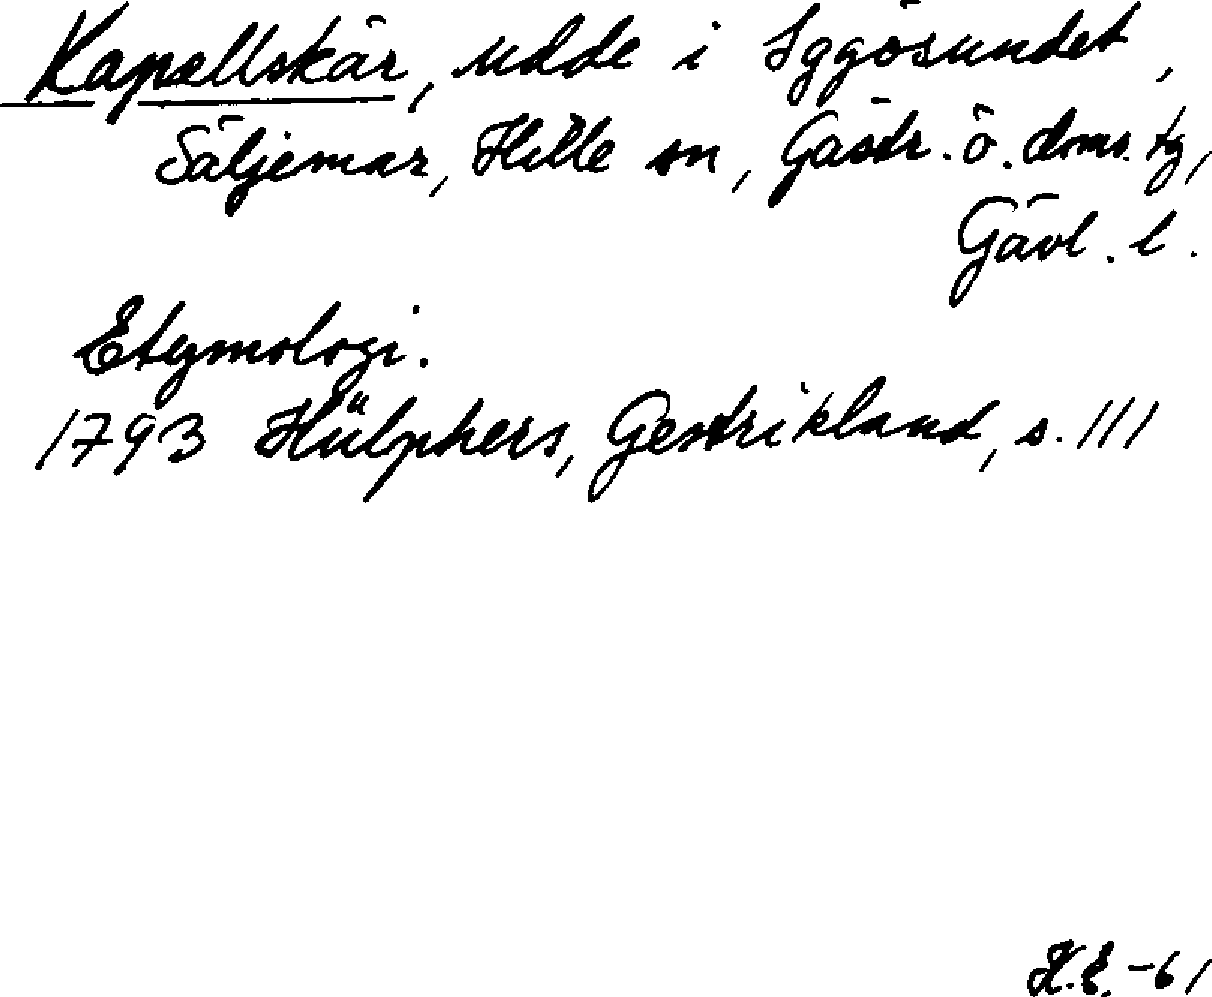 Kapellskär, udde i Iggösundet,
Säljemar, Hille sn, Gästr. ö. doms. tg,
Gävl. l.
Etymologi.
1793 Hülphers, Gestrikland, s. 111
K.E. -61